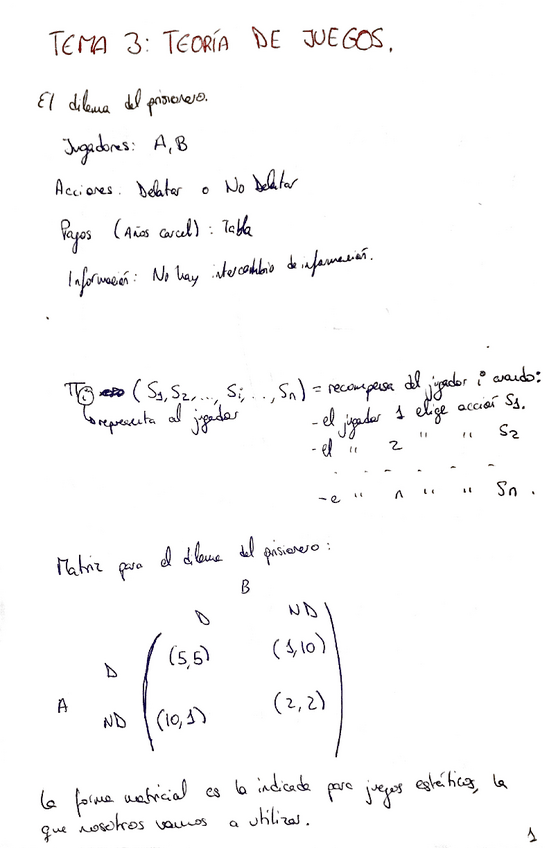 TEMA 3: TEORÍA DE JUEGOS.
El dilema del prisionero.
Jugadores: A, B
Acciones. Delatar o No Delatar
Pagos (Años carcel): Tabla
Información: No hay intercambio de información.
πi (S1, S2, ..., Si, ..., Sn) = recompensa del jugador i cuando:
representa al jugador
- el jugador 1 elige acción S1.
- el " 2 " " S2
- - - - - -
- e " n " " Sn.
Matriz para el dilema del prisionero:
B
D ND
D (5,5) (1,10)
A
ND (10,1) (2,2)
La forma matricial es la indicada para juegos estáticos, la
que nosotros vamos a utilizar.
1